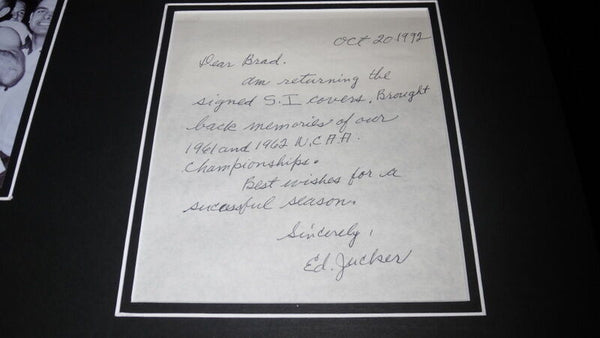 Oct 20 1992
Dear Brad.
Am returning the
signed S.I covers. Brought
back memories of our
1961 and 1962 N.C.A.A.
Championships.
Best wishes for a
sucessful season.
Sincerely,
Ed. Jucker